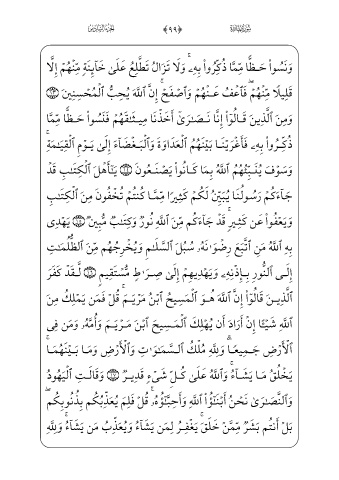 الجزء السادس ﴿٩٩﴾ سورة المائدة
وَنَسُوا۟ حَظًّا مِّمَّا ذُكِّرُوا۟ بِهِۦ ۚ وَلَا تَزَالُ تَطَّلِعُ عَلَىٰ خَآئِنَةٍ مِّنْهُمْ إِلَّا
قَلِيلًا مِّنْهُمْ ۖ فَٱعْفُ عَنْهُمْ وَٱصْفَحْ ۚ إِنَّ ٱللَّهَ يُحِبُّ ٱلْمُحْسِنِينَ ﴿١٣﴾
وَمِنَ ٱلَّذِينَ قَالُوٓا۟ إِنَّا نَصَـٰرَىٰٓ أَخَذْنَا مِيثَـٰقَهُمْ فَنَسُوا۟ حَظًّا مِّمَّا
ذُكِّرُوا۟ بِهِۦ فَأَغْرَيْنَا بَيْنَهُمُ ٱلْعَدَاوَةَ وَٱلْبَغْضَآءَ إِلَىٰ يَوْمِ ٱلْقِيَـٰمَةِ ۚ
وَسَوْفَ يُنَبِّئُهُمُ ٱللَّهُ بِمَا كَانُوا۟ يَصْنَعُونَ ﴿١٤﴾ يَـٰٓأَهْلَ ٱلْكِتَـٰبِ قَدْ
جَآءَكُمْ رَسُولُنَا يُبَيِّنُ لَكُمْ كَثِيرًا مِّمَّا كُنتُمْ تُخْفُونَ مِنَ ٱلْكِتَـٰبِ
وَيَعْفُوا۟ عَن كَثِيرٍ ۚ قَدْ جَآءَكُم مِّنَ ٱللَّهِ نُورٌ وَكِتَـٰبٌ مُّبِينٌ ﴿١٥﴾ يَهْدِى
بِهِ ٱللَّهُ مَنِ ٱتَّبَعَ رِضْوَٰنَهُۥ سُبُلَ ٱلسَّلَـٰمِ وَيُخْرِجُهُم مِّنَ ٱلظُّلُمَـٰتِ
إِلَى ٱلنُّورِ بِإِذْنِهِۦ وَيَهْدِيهِمْ إِلَىٰ صِرَٰطٍ مُّسْتَقِيمٍ ﴿١٦﴾ لَّقَدْ كَفَرَ
ٱلَّذِينَ قَالُوٓا۟ إِنَّ ٱللَّهَ هُوَ ٱلْمَسِيحُ ٱبْنُ مَرْيَمَ ۚ قُلْ فَمَن يَمْلِكُ مِنَ
ٱللَّهِ شَيْـًٔا إِنْ أَرَادَ أَن يُهْلِكَ ٱلْمَسِيحَ ٱبْنَ مَرْيَمَ وَأُمَّهُۥ وَمَن فِى
ٱلْأَرْضِ جَمِيعًا ۗ وَلِلَّهِ مُلْكُ ٱلسَّمَـٰوَٰتِ وَٱلْأَرْضِ وَمَا بَيْنَهُمَا ۚ
يَخْلُقُ مَا يَشَآءُ ۚ وَٱللَّهُ عَلَىٰ كُلِّ شَىْءٍ قَدِيرٌ ﴿١٧﴾ وَقَالَتِ ٱلْيَهُودُ
وَٱلنَّصَـٰرَىٰ نَحْنُ أَبْنَـٰٓؤُا۟ ٱللَّهِ وَأَحِبَّـٰٓؤُهُۥ ۚ قُلْ فَلِمَ يُعَذِّبُكُم بِذُنُوبِكُم ۖ
بَلْ أَنتُم بَشَرٌ مِّمَّنْ خَلَقَ ۚ يَغْفِرُ لِمَن يَشَآءُ وَيُعَذِّبُ مَن يَشَآءُ ۚ وَلِلَّهِ